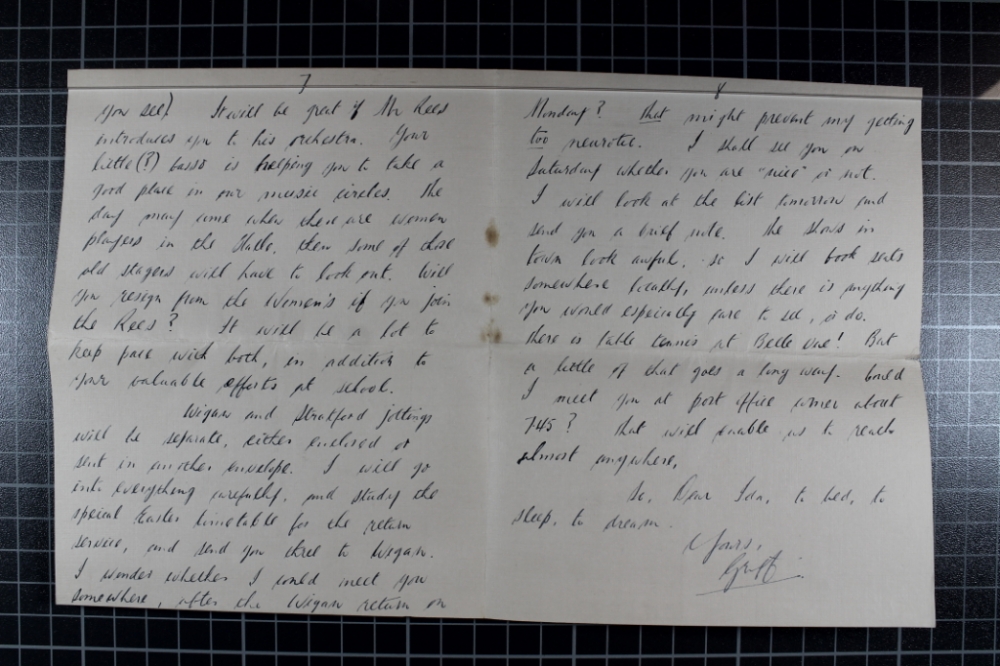 7
you see) It will be great if Mr Rees
introduces you to his orchestra. Your
little (?) basso is helping you to take a
good place in our music circles. The
day may come when there are women
players in the Halle, then some of those
old stagers will have to look out. Will
you resign from the Women's if you join
the Rees? It will be a lot to
keep pace with both, in addition to
your valuable efforts at school.
Wigan and Stratford jottings
will be separate, either enclosed or
sent in another envelope. I will go
into everything carefully, and study the
special Easter timetable for the return
service, and send you direct to Wigan.
I wonder whether I could meet you
somewhere, after the Wigan return on
8
Monday? That might prevent my getting
too neurotic. I shall see you on
Saturday whether you are "nice" or not.
I will look at the list tomorrow and
send you a brief note. The shows in
town look awful, so I will book seats
somewhere locally, unless there is anything
you would especially care to see, or do.
There is table tennis at Belle Vue! But
a little of that goes a long way. Could
I meet you at post office corner about
7.45? That will enable us to reach
almost anywhere.
So, Dear Ida, to bed, to
sleep, to dream.
Yours,
Griff.